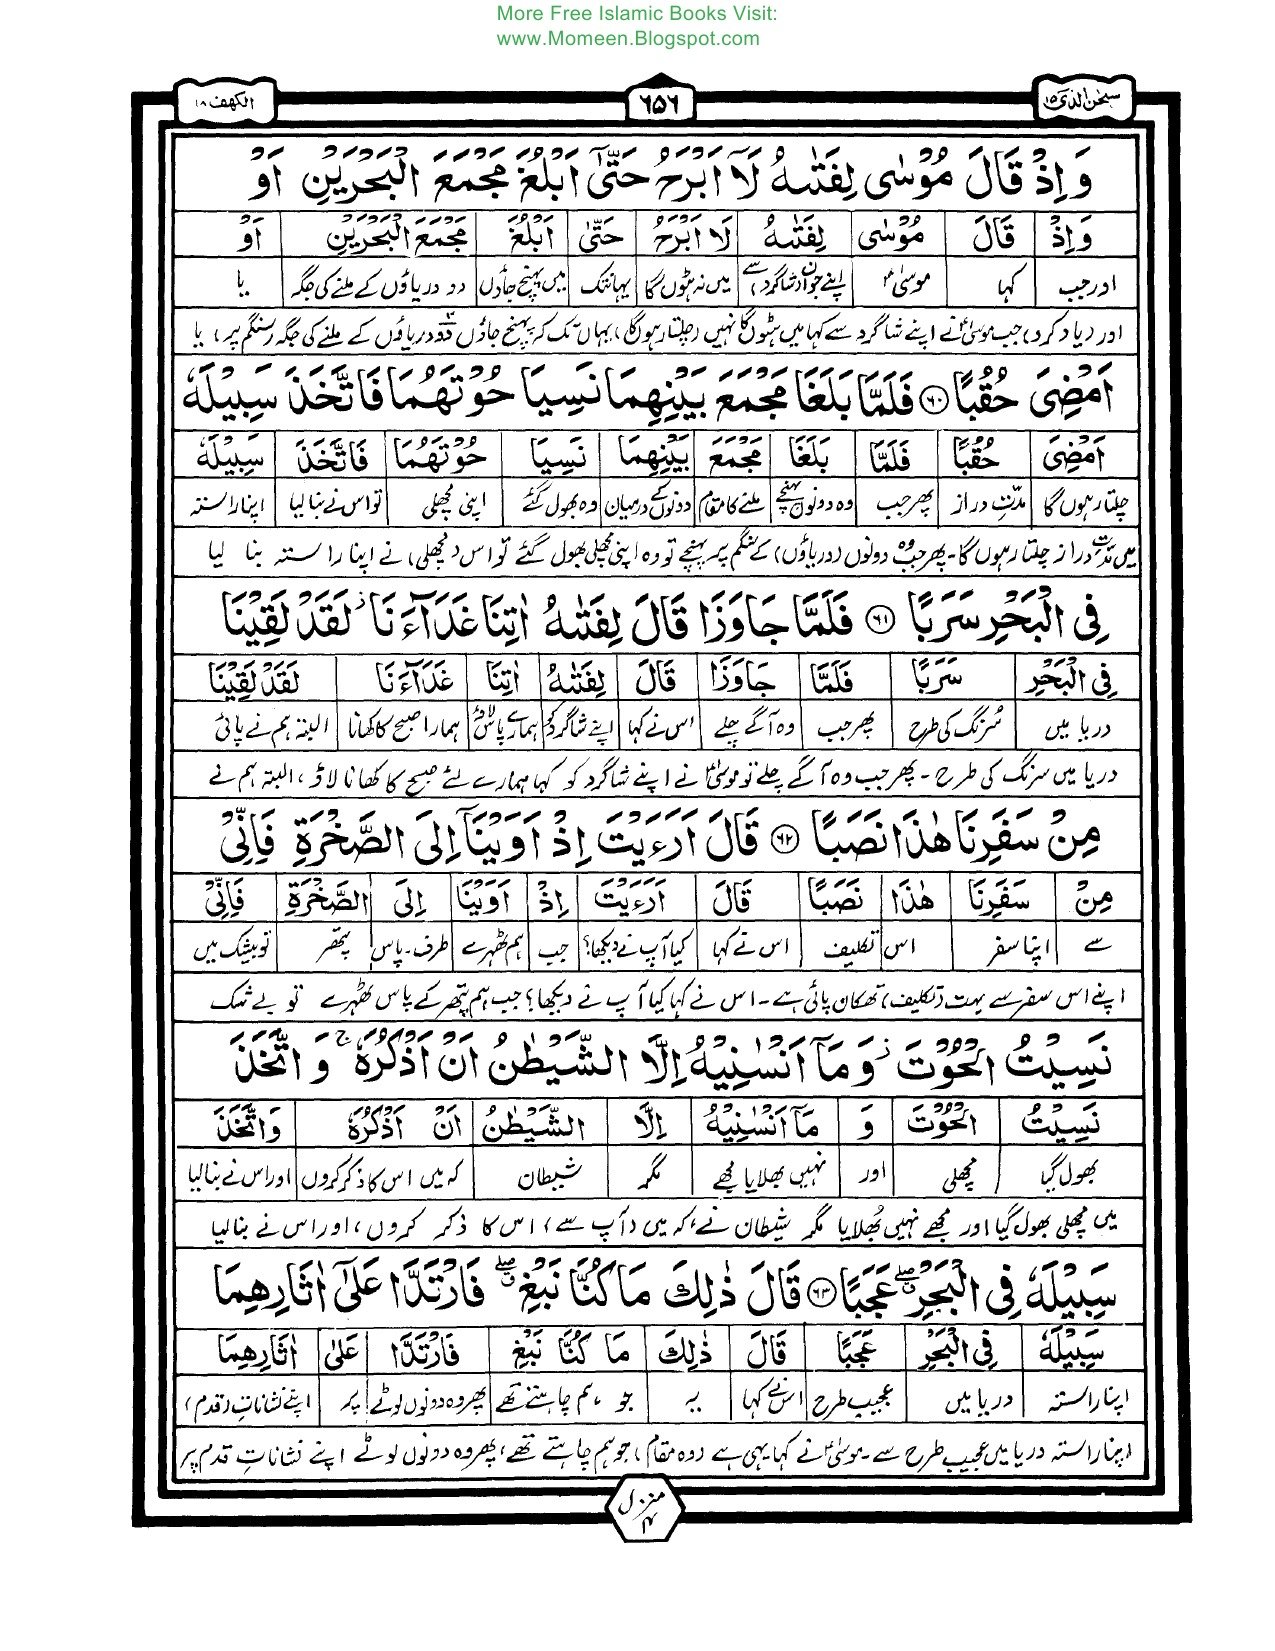 More Free Islamic Books Visit:
www.Momeen.Blogspot.com
سبحٰن الذی ۱۵
۶۵۶
الکهف ۱۸
وَاِذْ قَالَ مُوْسٰى لِفَتٰىهُ لَاۤ اَبْرَحُ حَتّٰۤى اَبْلُغَ مَجْمَعَ الْبَحْرَيْنِ اَوْ
وَاِذْ قَالَ مُوْسٰى لِفَتٰىهُ لَا اَبْرَحُ حَتّٰى اَبْلُغَ مَجْمَعَ الْبَحْرَيْنِ اَوْ
اور جب کہا موسیٰؑ اپنے جوان (شاگرد) سے میں نہ ہٹوں گا یہانتک میں پہنچ جاؤں دو دریاؤں کے ملنے کی جگہ یا
اور (یاد کرو) جب موسیٰؑ نے اپنے شاگرد سے کہا میں ہٹوں گا نہیں (چلتا رہوں گا)، یہاں تک کہ پہنچ جاؤں دو دریاؤں کے ملنے کی جگہ (سنگم پر) یا
اَمْضِىَ حُقُبًا ۶۰ فَلَمَّا بَلَغَا مَجْمَعَ بَيْنِهِمَا نَسِيَا حُوْتَهُمَا فَاتَّخَذَ سَبِيْلَهٗ
اَمْضِىَ حُقُبًا فَلَمَّا بَلَغَا مَجْمَعَ بَيْنِهِمَا نَسِيَا حُوْتَهُمَا فَاتَّخَذَ سَبِيْلَهٗ
چلتا رہوں گا مدّتِ دراز پھر جب وہ دونوں پہنچے ملنے کا مقام دونوں کے درمیان وہ بھول گئے اپنی مچھلی تو اس نے بنا لیا اپنا راستہ
میں مدّت دراز چلتا رہوں گا۔ پھر جب وہ دونوں (دریاؤں) کے سنگم پر پہنچے تو وہ اپنی مچھلی بھول گئے تو اس (مچھلی) نے اپنا راستہ بنا لیا
فِى الْبَحْرِ سَرَبًا ۶۱ فَلَمَّا جَاوَزَا قَالَ لِفَتٰىهُ اٰتِنَا غَدَآءَنَا ز لَقَدْ لَقِيْنَا
فِى الْبَحْرِ سَرَبًا فَلَمَّا جَاوَزَا قَالَ لِفَتٰىهُ اٰتِنَا غَدَآءَنَا لَقَدْ لَقِيْنَا
دریا میں سُرنگ کی طرح پھر جب وہ آگے چلے اس نے کہا اپنے شاگرد کو ہمارے پاس لاؤ ہمارا صبح کا کھانا البتہ ہم نے پائی
دریا میں سرنگ کی طرح۔ پھر جب وہ آگے چلے تو موسیٰؑ نے اپنے شاگرد کو کہا ہمارے لئے صبح کا کھانا لاؤ، البتہ ہم نے
مِنْ سَفَرِنَا هٰذَا نَصَبًا ۶۲ قَالَ اَرَءَيْتَ اِذْ اَوَيْنَاۤ اِلَى الصَّخْرَةِ فَاِنِّىْ
مِنْ سَفَرِنَا هٰذَا نَصَبًا قَالَ اَرَءَيْتَ اِذْ اَوَيْنَا اِلَى الصَّخْرَةِ فَاِنِّىْ
سے اپنا سفر اس تکلیف اس نے کہا کیا آپ نے دیکھا؟ جب ہم ٹھہرے طرف۔پاس پتھر تو بیشک میں
اپنے اس سفر سے بہت (تکلیف) تھکان پائی ہے۔ اس نے کہا کیا آپ نے دیکھا؟ جب ہم پتھر کے پاس ٹھہرے تو بے شک
نَسِيْتُ الْحُوْتَ ز وَمَاۤ اَنْسٰىنِيْهُ اِلَّا الشَّيْطٰنُ اَنْ اَذْكُرَهٗ ج وَاتَّخَذَ
نَسِيْتُ الْحُوْتَ وَ مَاۤ اَنْسٰىنِيْهُ اِلَّا الشَّيْطٰنُ اَنْ اَذْكُرَهٗ وَاتَّخَذَ
بھول گیا مچھلی اور نہیں بھلایا مجھے مگر شیطان کہ میں اس کا ذکر کروں اور اس نے بنا لیا
میں مچھلی بھول گیا اور مجھے نہیں بُھلایا مگر شیطان نے، کہ میں (آپ سے) اس کا ذکر کروں، اور اس نے بنا لیا
سَبِيْلَهٗ فِى الْبَحْرِ عَجَبًا ۶۳ قَالَ ذٰلِكَ مَا كُنَّا نَبْغِ فَارْتَدَّا عَلٰۤى اٰثَارِهِمَا
سَبِيْلَهٗ فِى الْبَحْرِ عَجَبًا قَالَ ذٰلِكَ مَا كُنَّا نَبْغِ فَارْتَدَّا عَلٰى اٰثَارِهِمَا
اپنا راستہ دریا میں عجیب طرح اس نے کہا یہ جو ہم چاہتے تھے پھر وہ دونوں لوٹے پر اپنے نشانات (قدم)
اپنا راستہ دریا میں عجیب طرح سے۔ موسیٰؑ نے کہا یہی ہے (وہ مقام) جو ہم چاہتے تھے، پھر وہ دونوں لوٹے اپنے نشانات قدم پر
منزل
۴